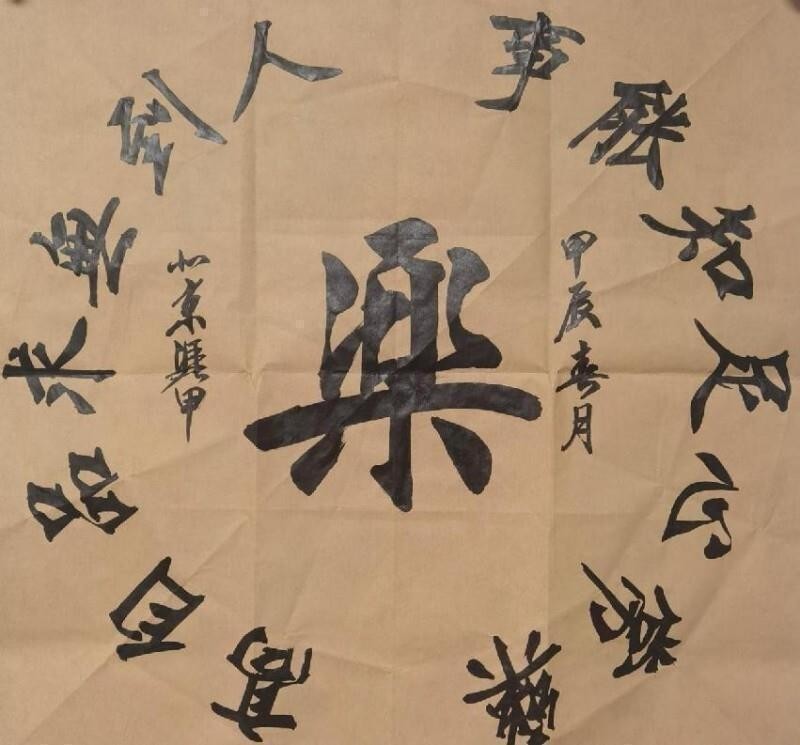 樂
事能知足心常樂
人到無求品自高
甲辰春月
北京